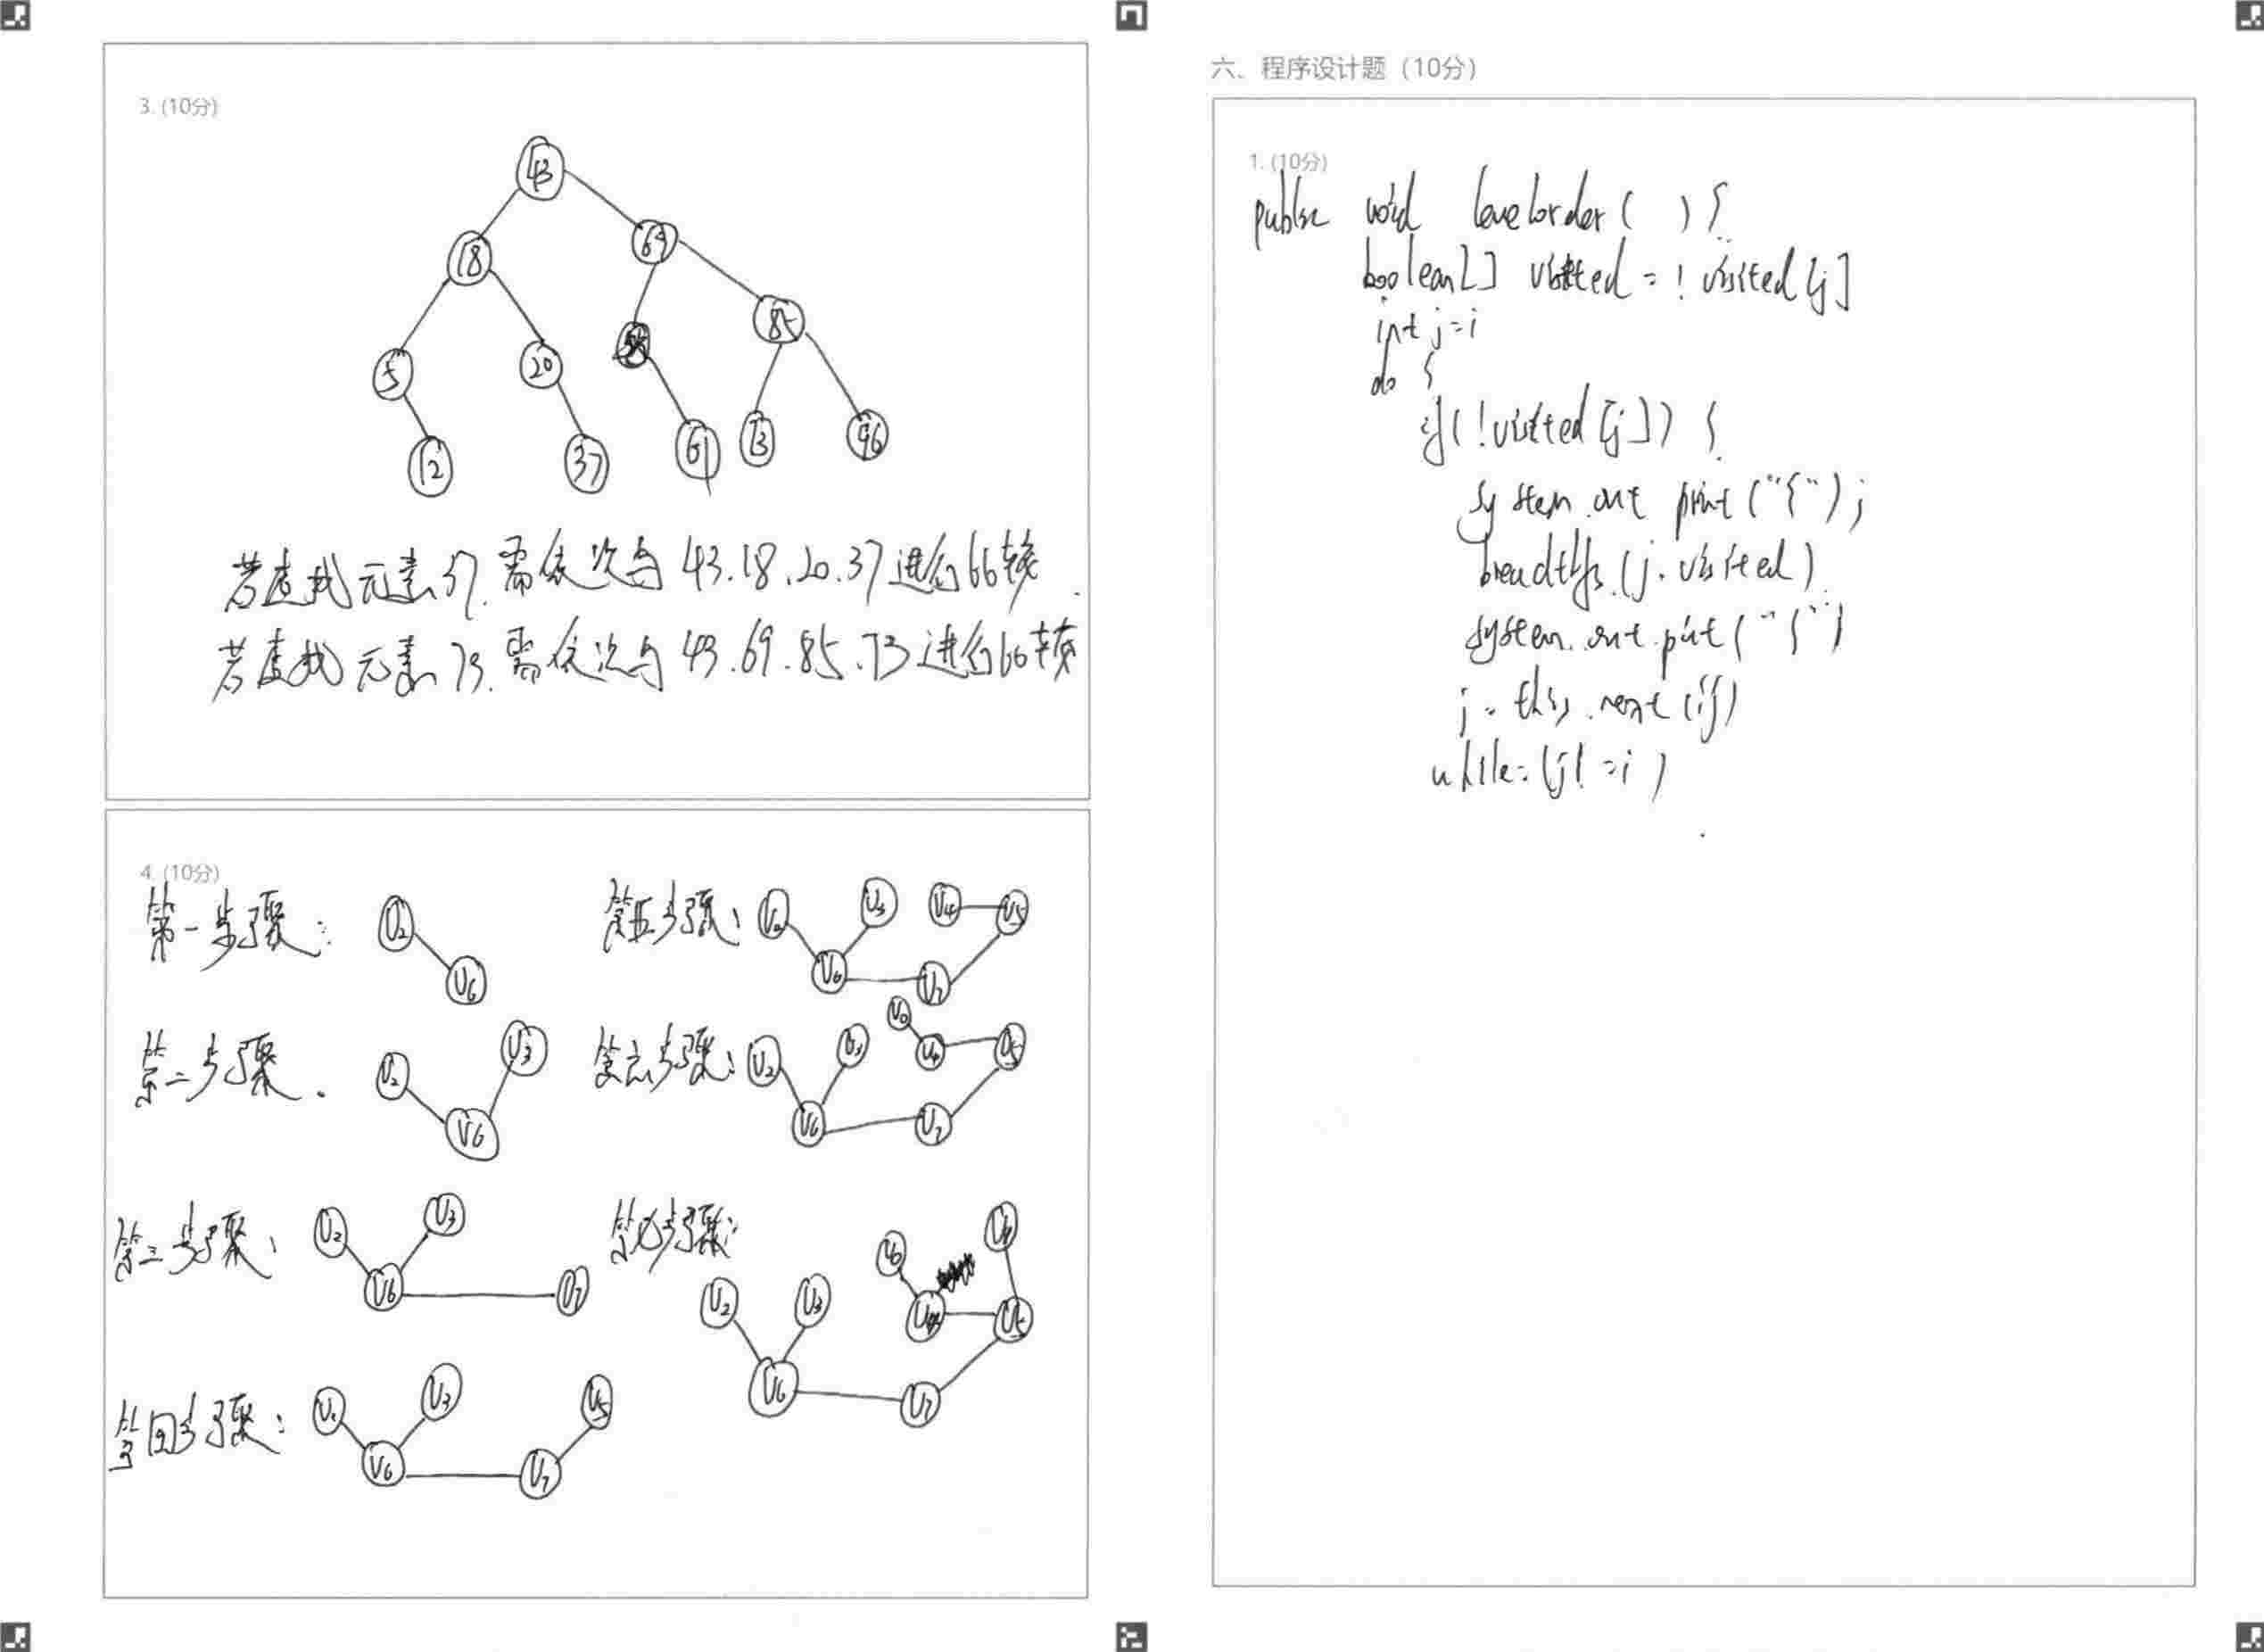 3. (10分)
43
18
69
5
20
85
12
37
61
73
96
若查找元素37.需依次与43.18.20.37进行比较.
若查找元素73.需依次与43.69.85.73进行比较
4. (10分)
第一步骤:
V2
V6
第二步骤.
V2
V3
V6
第三步骤:
V2
V3
V6
V7
第四步骤:
V3
V5
V6
V7
第五步骤:
V2
V3
V4
V5
V6
V7
第六步骤:
V0
V2
V3
V4
V5
V6
V7
第七步骤:
V0
V2
V3
V4
V5
V6
V7
六、程序设计题 (10分)
1. (10分)
public void levelorder( ) {
boolean[] visited = ! visited[j]
int j=i
do {
if(!visited[j]) {
system.out print("{");
breadthfs(j. visited)
system.out.print("{")
j = this.next(ij)
while=(j!=i)